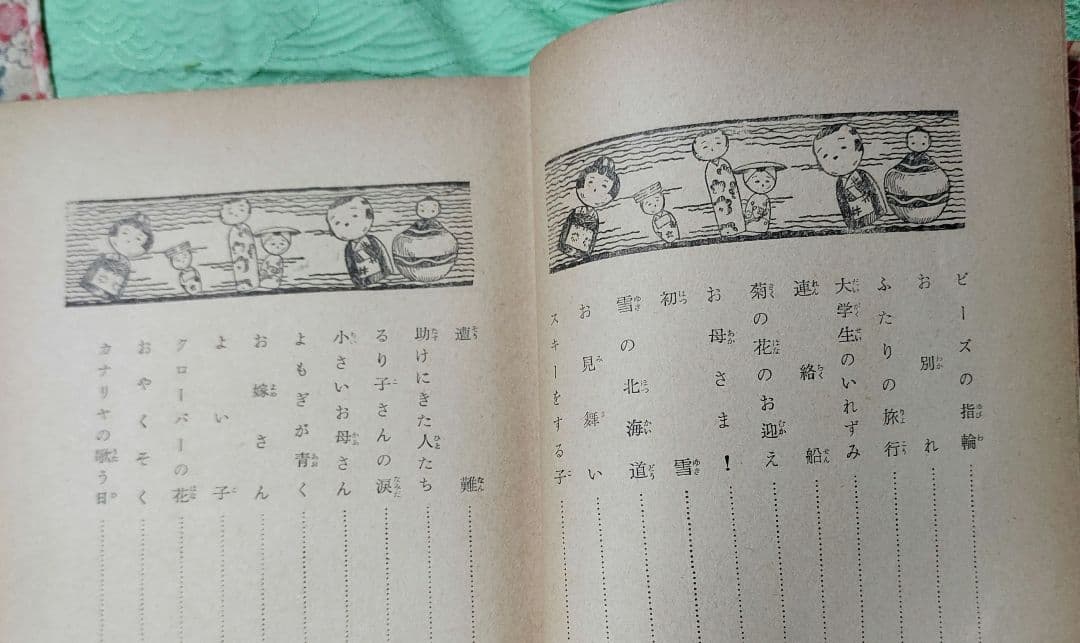 ビーズの指輪
お別れ
ふたりの旅行
大学生のいれずみ
連絡船
菊の花のお迎え
お母さま!
初雪
雪の北海道
お見舞い
スキーをする子
遭難
助けにきた人たち
るり子さんの涙
小さいお母さん
よもぎが青く
お嫁さん
よい子
クローバーの花
おやくそく
カナリヤの歌う日